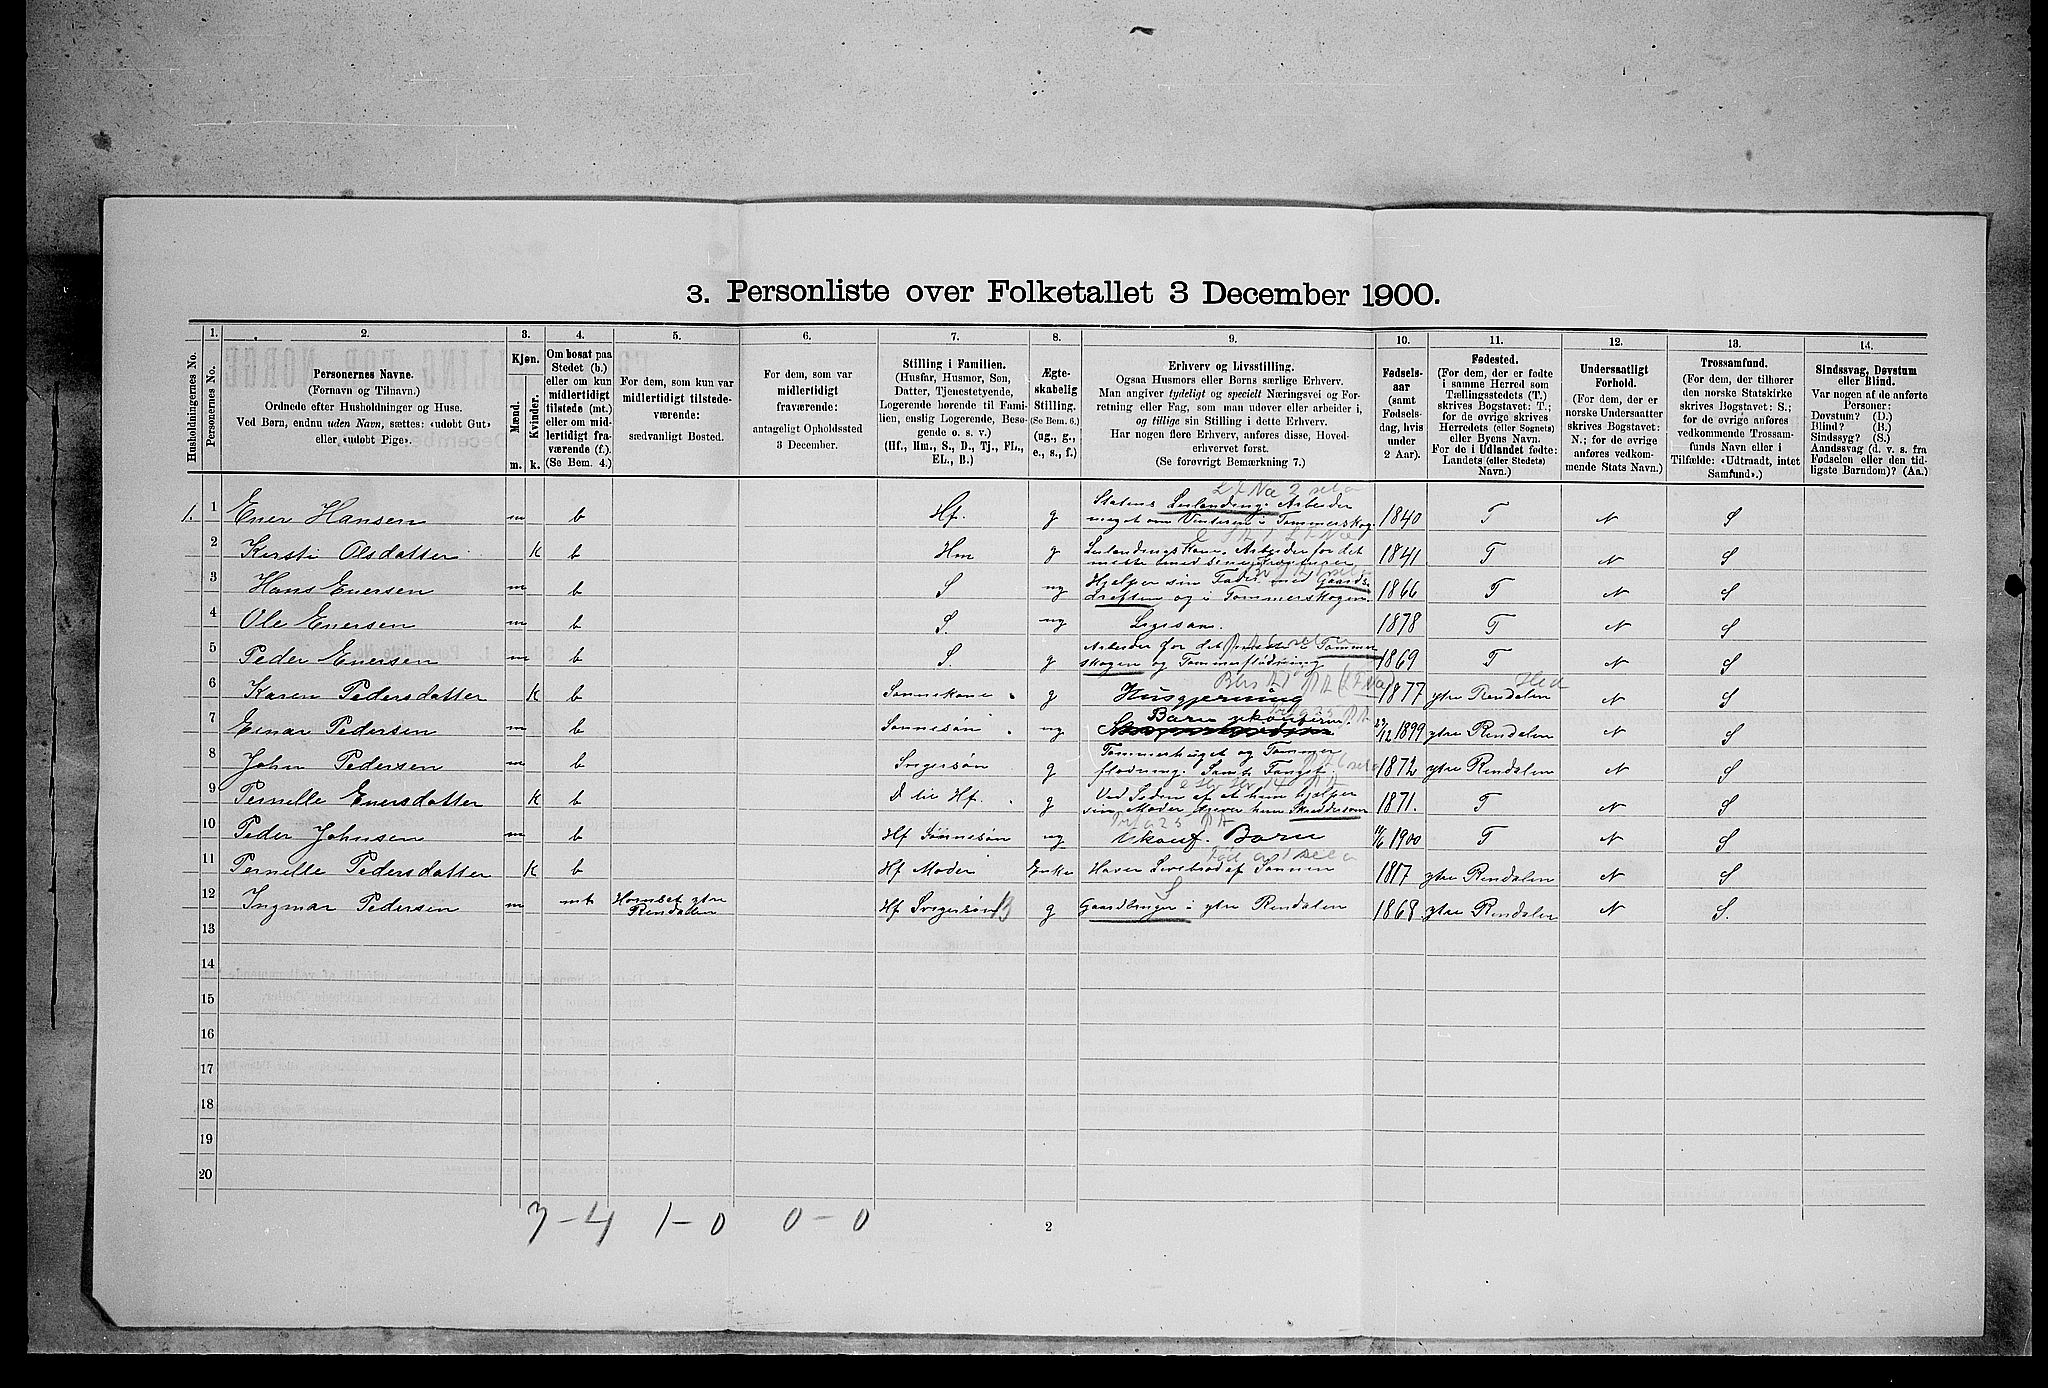 3. Personliste over Folketallet 3 December 1900.
1. 2. 3. 4. 5. 6. 7. 8. 9. 10. 11. 12. 13. 14.
Husholdningernes No.
Personernes No.
Personernes Navne.
(Fornavn og Tilnavn.)
Ordnede efter Husholdninger og Huse.
Ved Børn, endnu uden Navn, sættes: «udobt Gut»
eller «udobt Pige».
Kjøn.
Mænd.
Kvinder.
m. k.
Om bosat paa
Stedet (b.)
eller om kun
midlertidigt
tilstede (mt.)
eller om mid-
lertidigt fra-
værende (f.).
(Se Bem. 4.)
For dem, som kun var
midlertidigt tilstede-
værende:
sædvanligt Bosted.
For dem, som var
midlertidigt
fraværende:
antageligt Opholdssted
3 December.
Stilling i Familien.
(Husfar, Husmor, Søn,
Datter, Tjenestetyende,
Logerende hørende til Fami-
lien, enslig Logerende, Besø-
gende o. s. v.)
(Hf., Hm., S., D., Tj., FL.,
EL., B.)
Ægte-
skabelig
Stilling.
(Se Bem. 6.)
(ug., g.,
e., s., f.)
Erhverv og Livsstilling.
Ogsaa Husmors eller Børns særlige Erhverv.
Man angiver tydeligt og specielt Næringsvei og For-
retning eller Fag, som man udøver eller arbeider i,
og tillige sin Stilling i dette Erhverv.
Har nogen flere Erhverv, anføres disse, Hoved-
erhvervet først.
(Se forøvrigt Bemærkning 7.)
Fødsels-
aar
(samt
Fødsels-
dag, hvis
under
2 Aar).
Fødested.
(For dem, der er fødte
i samme Herred som
Tællingsstedets (T.)
skrives Bogstavet: T.;
for de øvrige skrives
Herredets (eller Sognets)
eller Byens Navn.
For de i Udlandet fødte:
Landets (eller Stedets)
Navn.)
Undersaatligt
Forhold.
(For dem, der er
norske Undersaatter
skrives Bogstavet:
N.; for de øvrige
anføres vedkom-
mende Stats Navn.)
Trossamfund.
(For dem, der tilhører
den norske Statskirke
skrives Bogstavet: S.;
for de øvrige anføres
vedkommende Trossam-
funds Navn eller i
Tilfælde: «Udtraadt, intet
Samfund».)
Sindssvag, Døvstum
eller Blind.
Var nogen af de anførte
Personer:
Døvstum? (D.)
Blind? (B.)
Sindssyg? (S.)
Aandssvag (d. v. s. fra
Fødselen eller den tid-
ligste Barndom)? (Aa.)
1. 1 Ener Hansen m b Hf. g Statens Leilænding. Arbeider
meget om Vinteren i Tømmerskog. 1840 T N S
2 Kersti Olsdatter K b Hm g Leilændings Kone. Arbeider for det
meste med 1841 T N S
3 Hans Enersen m b S ug Hjælper sin Fader med Gaards-
driften og i Tømmerskogen. 1866 T N S
4 Ole Enersen m b S. ug Ligesaa. 1878 T N S
5 Peder Enersen m b S. g Arbeider for det meste i Tømmer
skogen og Tømmerflødning 1869 T N S
6 Karen Pedersdatter K b Sønnekone g Husgjerning 1877 ytre Rendalen Hed N S
7 Einar Pedersen m b Sønnesøn ug Barn 1899 ytre Rendalen N S
8 John Pedersen m b Svigersøn g Tømmerhuget og Tømmer
flødning. Samt Fangst. 1872 ytre Rendalen N S
9 Pernille Enersdatter K b D til Hf. g Ved Siden af at hun hjælper
sin Moder driver hun Skræddersøm 1871. T N S
10 Peder Johnsen m b Hf Sønnesøn ug Ukonf. Barn 1900 T N S
11 Pernille Pedersdatter K b Hf Moder Enke Haver Levebrød af Sønnen 1817 ytre Rendalen N S
12 Ingmar Pedersen m mt Hornset ytre
Rendalen Hf Svigersøn B g Gaardbruger i ytre Rendalen 1868 ytre Rendalen N S.
13
14
15
16
17
18
19
20
7-4 1-0 0-0
2